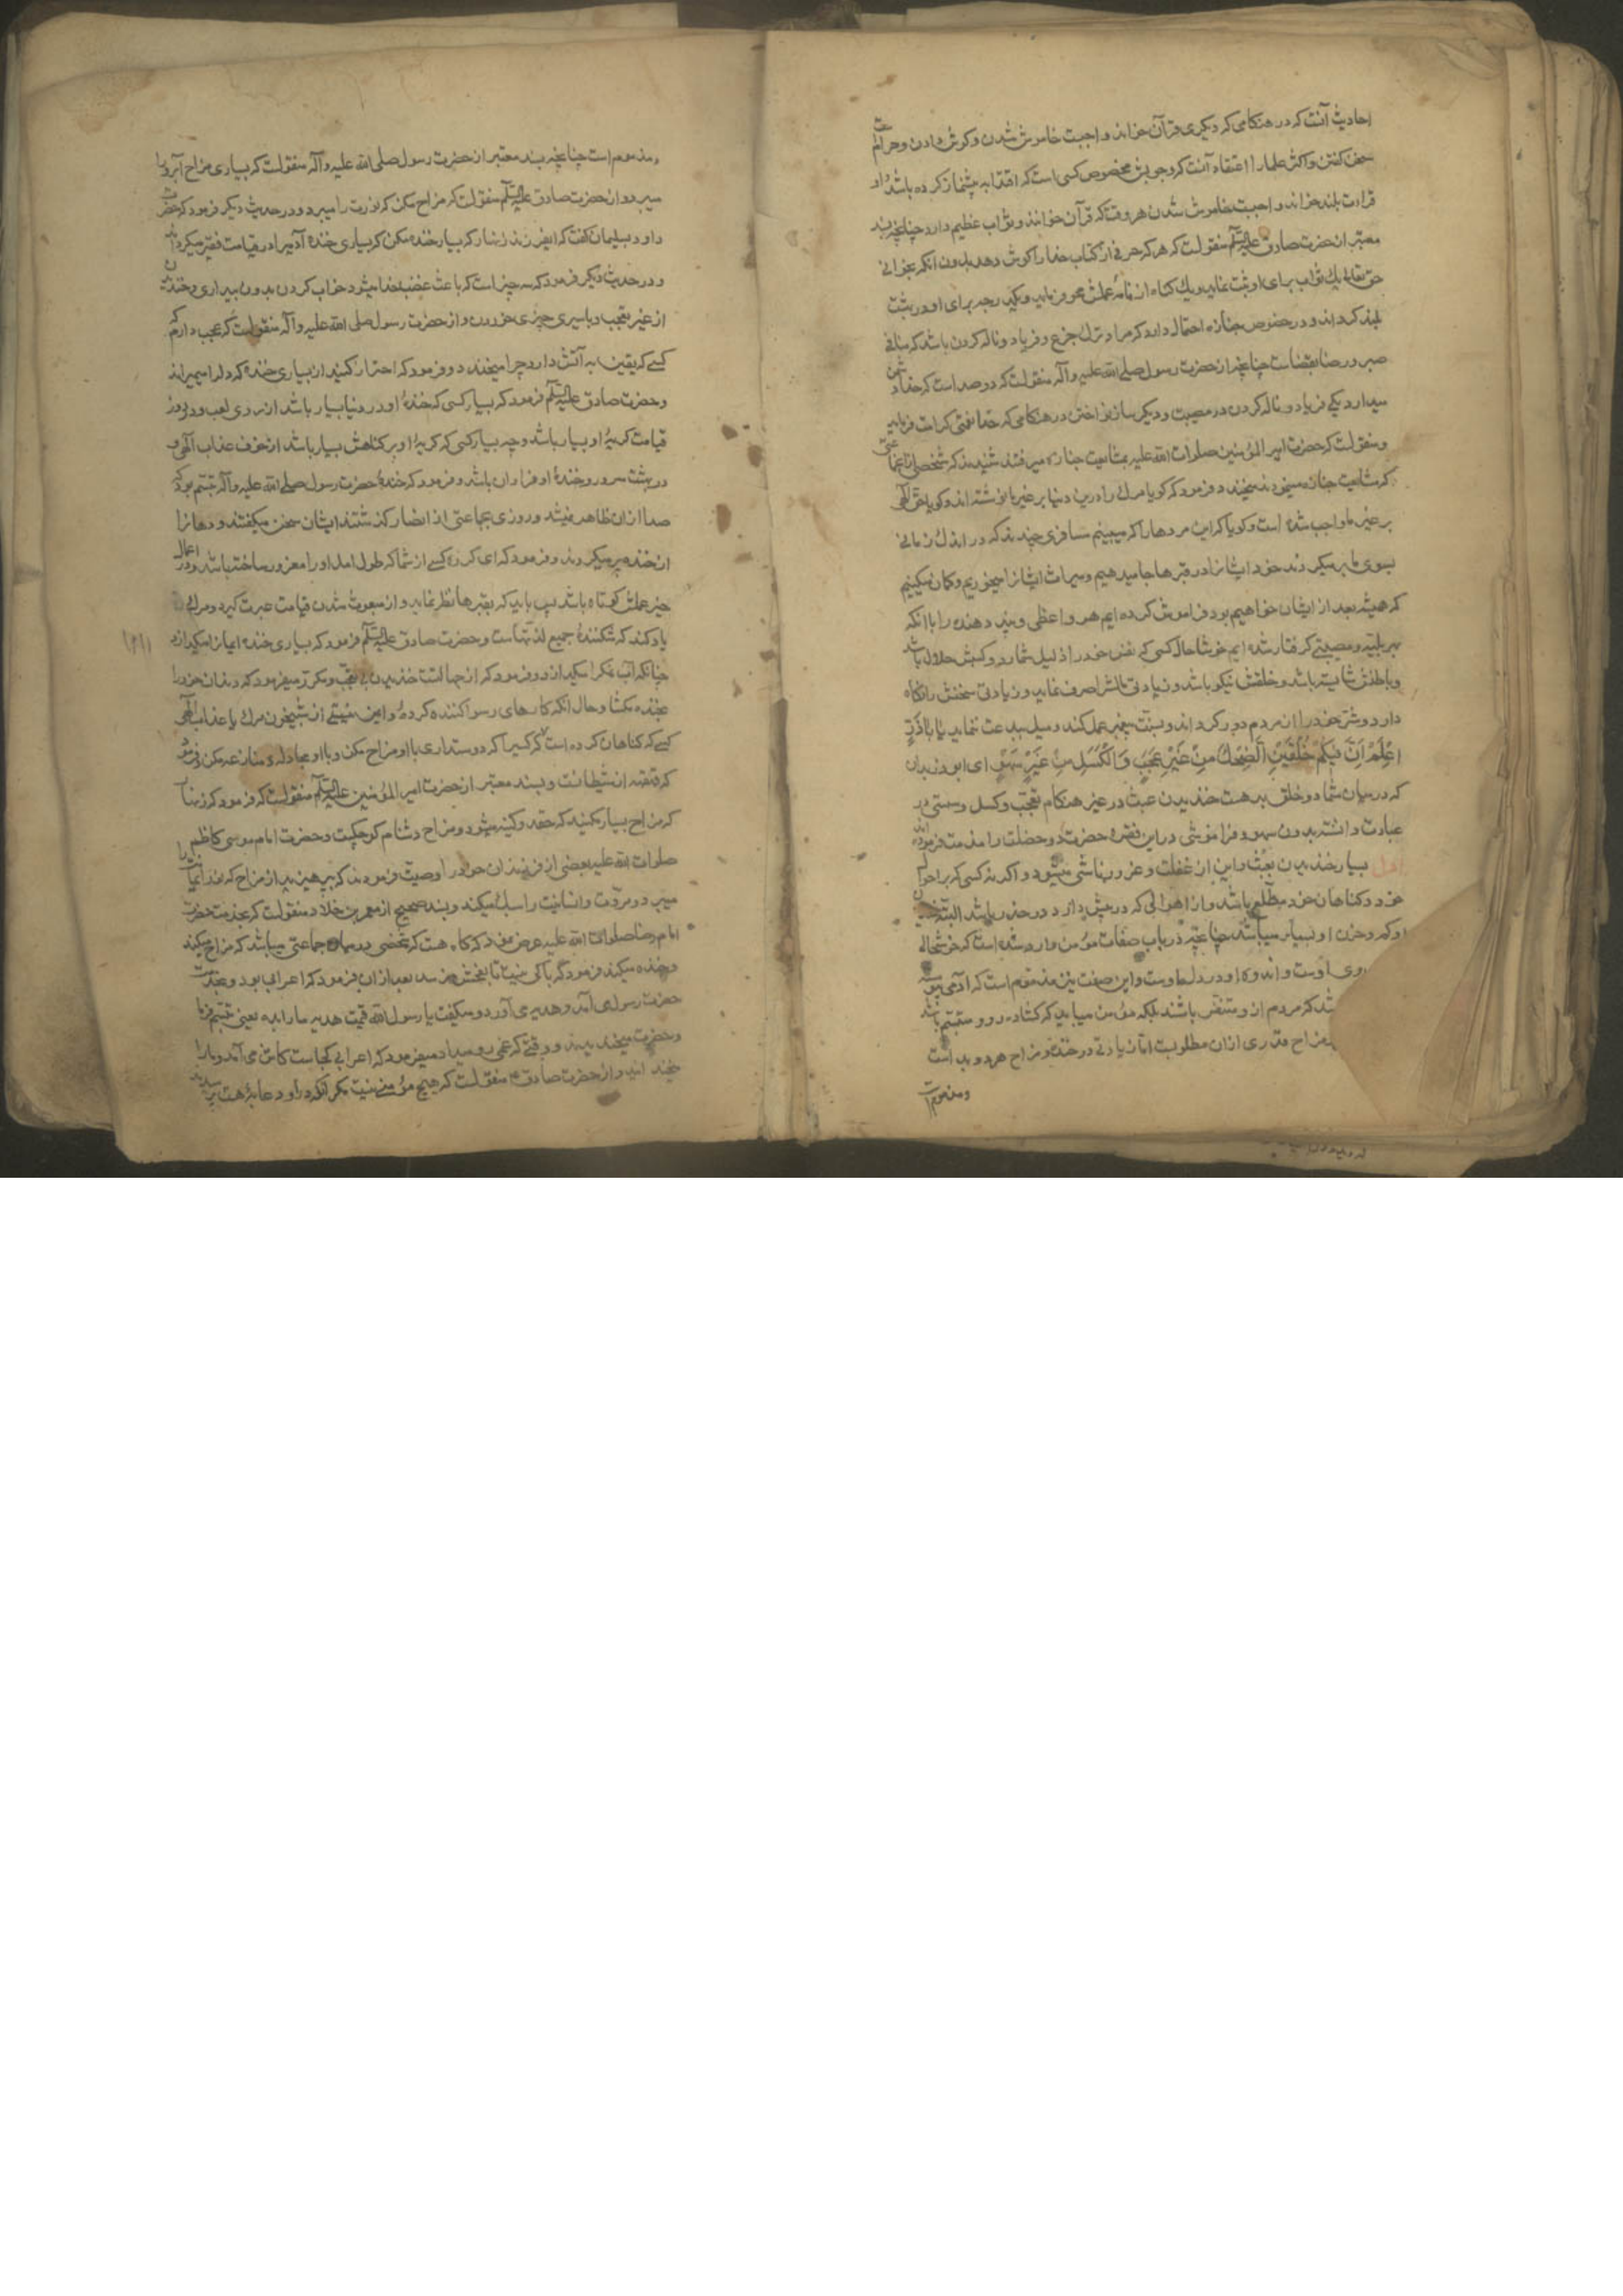 احادیث آنست که در هنکامی که دیکری قرآن خواند واجبست خاموش شدن وکوش دادن وحرام است
سخن کفتن واکثر علما را اعتقاد آنست که وجوبش مخصوص کسی است که اقتدا به پیشنماز کرده باشد واو
قراءت بلند خواند واجبست خاموش شدن هر وقت که قرآن خوانند وثواب عظیم دارد چنانچه بسند
معتبر از حضرت صادق علیه السلام منقولست که هر که حرفی از کتاب خدا را کوش دهد بدون انکه بخواند
حق تعالی یك ثواب برای او ثبت نماید ویك کناه از نامه عملش محو فرماید ویکدرجه برای او در بهشت
بلند کرداند ودر خصوص جنازه احتمال دارد که مراد ترك جزع وفریاد وناله کردن باشد که منافی
صبر ورضا بقضاست چنانچه از حضرت رسول صلی الله علیه وآله منقولست که دو صداست که خدا دشمن
میدارد یکی فریاد وناله کردن در مصیبت ودیکر ساز نواختن در هنکامی که خدا نعمتی کرامت فرماید
ومنقولست که حضرت امیر المؤمنین صلوات الله علیه بمشایعت جنازه میرفتند شنیدند که شخصی از جماعتی
که مشایعت جنازه مینمودند میخندد فرمود که کویا مرك را درین دنیا بر غیر ما نوشته اند وکویا حق الهی
بر غیر ما واجب شده است وکویا که این مردها را که میبینم مسافری چندند که در اندك زمانی
بسوی ما برمیکردند خود ایشانرا در قبرها جا میدهیم ومیراث ایشانرا میخوریم وکمان میکنیم
که همیشه بعد از ایشان خواهیم بود فراموش کرده ایم هر واعظی وپند دهنده را با انکه
بهر بلیه ومصیبتی کرفتار شده ایم خوشا حال کسی که نفس خود را ذلیل شمارد وکسبش حلال باشد
وباطنش شایسته باشد وخلقش نیکو باشد وزیادتی مالش را صرف نماید وزیادتی سخنش را نکاه
دارد وشر خود را از مردم دور کرداند وبسنت پیغمبر عمل کند ومیل ببدعت ننماید یا اباذر
اعلم ان فیکم خلقین الضحك من غیر عجب والکسل من غیر سهو ای ابوذر بدان
که در میان شما دو خلق بد هست خندیدن عبث در غیر هنکام تعجب وکسل وسستی در
عبادت دانسته بدون سهو وفراموشی در این فقره حضرت دو خصلت را مذمت فرموده اند
اول بسیار خندیدن بعبث واین از غفلت وغرور ناشی میشود واکر نه کسی که بر احوال
خود وکناهان خود مطلع باشد واز اهوالی که در پیش دارد در حذر باشد البته خنده
او کم وحزن او بسیار میباشد چنانچه در باب صفات مؤمن وارد شده است که خوشحالی
روی اوست واندوه او در دل اوست واین صفت نیز مذموم است که آدمی پیوسته
شد که مردم از او متنفر باشند بلکه مؤمن میباید که کشاده رو ومتبسم باشد
مزاح قدری از ان مطلوبست اما زیادتی در خنده ومزاح هر دو بد است
ومذموم است
ومذموم است چنانچه بسند معتبر از حضرت رسول صلی الله علیه وآله منقولست که بسیاری مزاح آبرو را
میبرد واز حضرت صادق علیه السلام منقولست که مزاح مکن که نورت را میبرد ودر حدیث دیکر فرمود که حضرت
داود بسلیمان کفت که ایفرزند زنهار که بسیار خنده مکن که بسیاری خنده آدمیرا در قیامت فقیر میکرداند
ودر حدیث دیکر فرمود که سه چیز است که باعث غضب خدا میشود خواب کردن بدون بیداری وخندیدن
از غیر تعجب وبا سیری چیزی خوردن واز حضرت رسول صلی الله علیه وآله منقولست که عجب دارم که
کسی که یقین به آتش دارد چرا میخندد وفرمود که احتراز کنید از بسیاری خنده که دلرا میمیراند
وحضرت صادق علیه السلام فرمود که بسیار کسی که خنده او در دنیا بسیار باشد از روی لعب ودر روز
قیامت کریه او بسیار باشد وچه بسیار کسی که کریه او بر کناهش بسیار باشد از خوف عذاب الهی و
در بهشت سرور وخنده او فراوان باشد وفرمود که خنده حضرت رسول صلی الله علیه وآله تبسم بود که
صدا از ان ظاهر نمیشد وروزی بجماعتی از انصار کذشتند ایشان سخن میکفتند ودهانرا
از خنده پر میکردند وفرمود که ای کروه کسی از شما که طول امل او را مغرور ساخته باشد ودر اعمال
خیر عملش کوتاه باشد پس باید که بقبرها نظر نماید واز مبعوث شدن قیامت عبرت کیرد ومرك را
یاد کند که شکننده جمیع لذتهاست وحضرت صادق علیه السلام فرمود که بسیاری خنده ایمانرا میکدازد
چنانکه آب نمکرا میکدازد وفرمود که از جهالتست خندیدن بی تعجب ومکرر میفرمود که دندان خود را
بخنده مکشا وحال انکه کارهای رسوا کننده کرده وایمن نیستی از شبیخون مرك یا عذاب الهی
کسی که کناهان کرده است که کسیرا که دوستداری با او مزاح مکن وبا او مجادله ومنازعه مکن وفرمود
که قهقهه از شیطانست وبسند معتبر از حضرت امیر المؤمنین علیه السلام منقولست که فرمود که زنهار
که مزاح بسیار مکنید که حقد وکینه میشود ومزاح دشنام کوچکیست وحضرت امام موسی کاظم
صلوات الله علیه بعضی از فرزندان خود را وصیت فرمودند که بپرهیزید از مزاح که نور ایمانت را
میبرد ومروت وانسانیت را سبك میکند وبسند صحیح از معمر بن خلاد منقولست که بخدمت حضرت
امام رضا صلوات الله علیه عرض نمود که کاه هست که شخصی در میان جماعتی میباشد که مزاح میکنند
وخنده میکنند فرمود که باکی نیست تا بفحش نرسد بعد از ان فرمود که اعرابی بود وبخدمت
حضرت رسول می آمد وهدیه می آورد ومیکفت یا رسول الله قیمت هدیه ما را بده یعنی تبسم فرما
وحضرت میخندیدند ووقتی که غمی رو میداد میفرمود که اعرابی کجاست کاش می آمد وما را
میخندانید واز حضرت صادق منقولست که هیچ مؤمنی نیست مکر آنکه در او دعابه هست